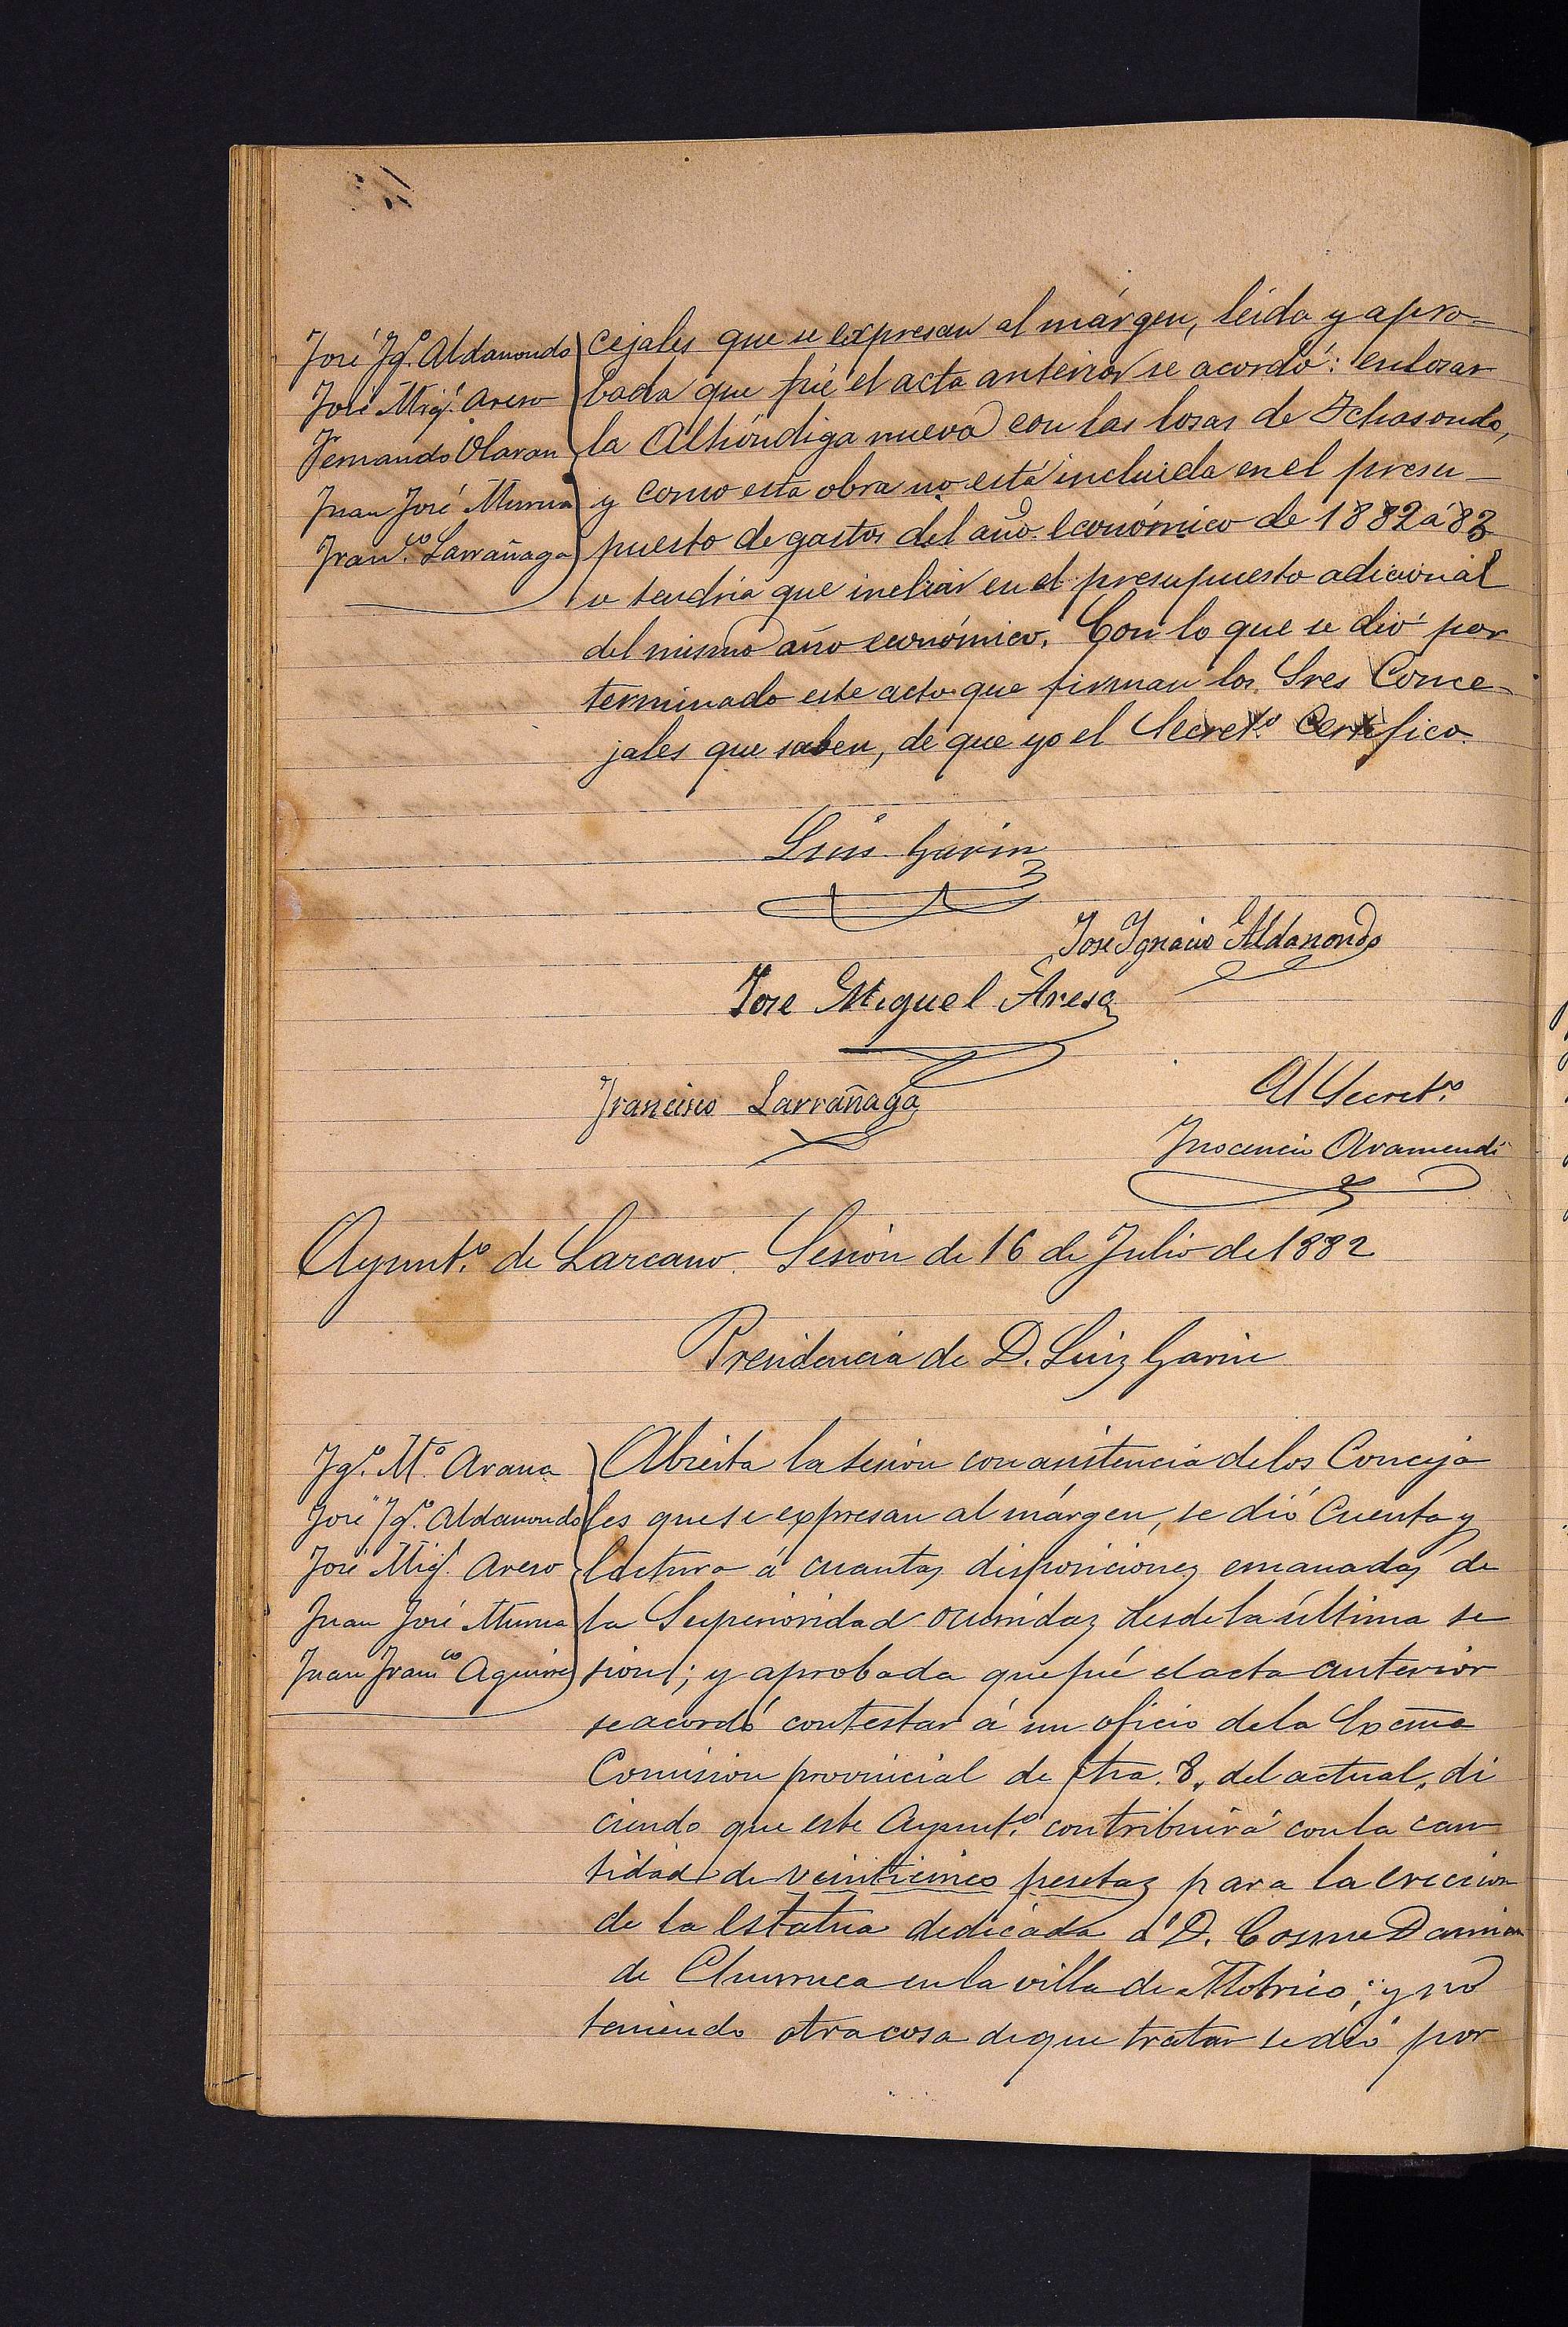 José Ig.º Aldanondo
José Mig.l Areso
Fernando Olaran
Juan José Murua
Fran.co Larrañaga
cejales que se expresan al márgen, leida y apro-
bada que fué el acta anterior se acordó: enlosar
la Alhóndiga nueva con las losas de Ichasondo,
y como esta obra no está incluida en el presu-
puesto de gastos del año económico de 1882 á 83
se tendria que incluir en el presupuesto adicional
del mismo año económico. Con lo que se dió por
terminado este acto que firman los Sres Conce-
jales que saben, de que yo el Secret.º Certifico.
Luis Garin
José Ignacio Aldanondo
Jose Miguel Areso
Francisco Larrañaga
El Secret.º
Inocencio Aramendi
Ayunt.º de Lazcano. Sesión de 16 de Julio de 1882
Presidencia de D. Luiz Garin
Ig.º M.ª Arana
José Ig.º Aldanondo
José Mig.l Areso
Juan José Murua
Juan Fran.co Aguirre
Abierta la sesion con asistencia de los Conceja
les que se expresan al márgen, se dió cuenta y
lectura á cuantas disposiciones emanadas de
la Superioridad ocurridaz desde la última se
sion; y aprobada que fué el acta anterior
se acordó contestar á un oficio de la Excma
Comision provincial de fha. 8, del actual, di
ciendo que este Ayunt.º contribuirá con la can
tidad de veinticinco pesetaz para la ereccion
de la Estatua dedicada á D. Cosme Damian
de Churruca en la villa de Motrico; y no
teniendo otra cosa de que tratar se dió por